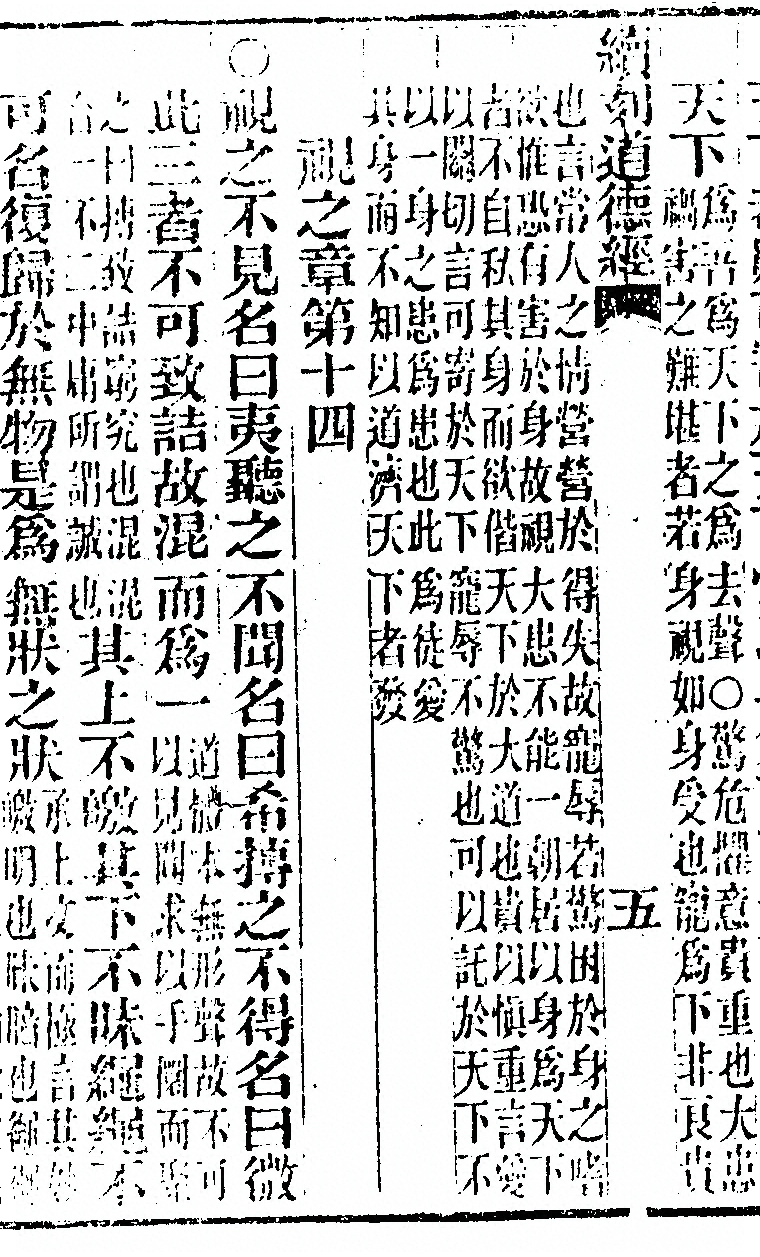 天下
為吾為天下之為去聲〇驚危懼意貴重也大患
禍害之難堪者若身視如身受也寵為下非真貴
續刻道德經
五
也言常人之情營營於得失故寵辱若驚困於身之嗜
欲惟恐有害於身故視大患不能一朝居以身為天下
者不自私其身而欲偕天下於大道也貴以慎重言愛
以關切言可寄於天下寵辱不驚也可以託於天下不
以一身之患為患也此為徒愛
其身而不知以道濟天下者發
視之章第十四
〇視之不見名曰夷聽之不聞名曰希摶之不得名曰微
此三者不可致詰故混而為一
道體本無形聲故不可
以見聞求以手闊而
之曰摶致詰窮究也混混
合一不二中庸所謂誠也
其上不皦其下不昧繩繩不
可名復歸於無物是為無狀之狀
承上文而極言其妙
皦明也昧暗也